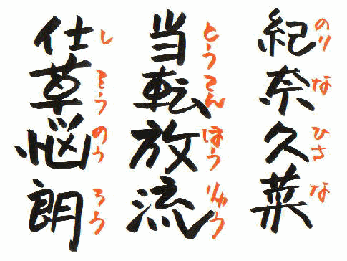 紀奈久菜
のりなひさな
当転放流
とうてんほうりゅう
仕草悩朗
しそうのうろう